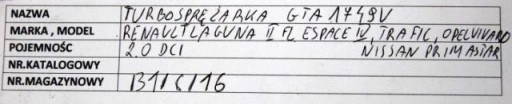 NAZWA TURBOSPRĘŻARKA GTA1749V
MARKA , MODEL RENAULT LAGUNA II FL ESPACE IV, TRAFIC, OPEL VIVARO
POJEMNOŚĆ 2.0 DCI NISSAN PRIMASTAR
NR.KATALOGOWY
NR.MAGAZYNOWY B1/C/16